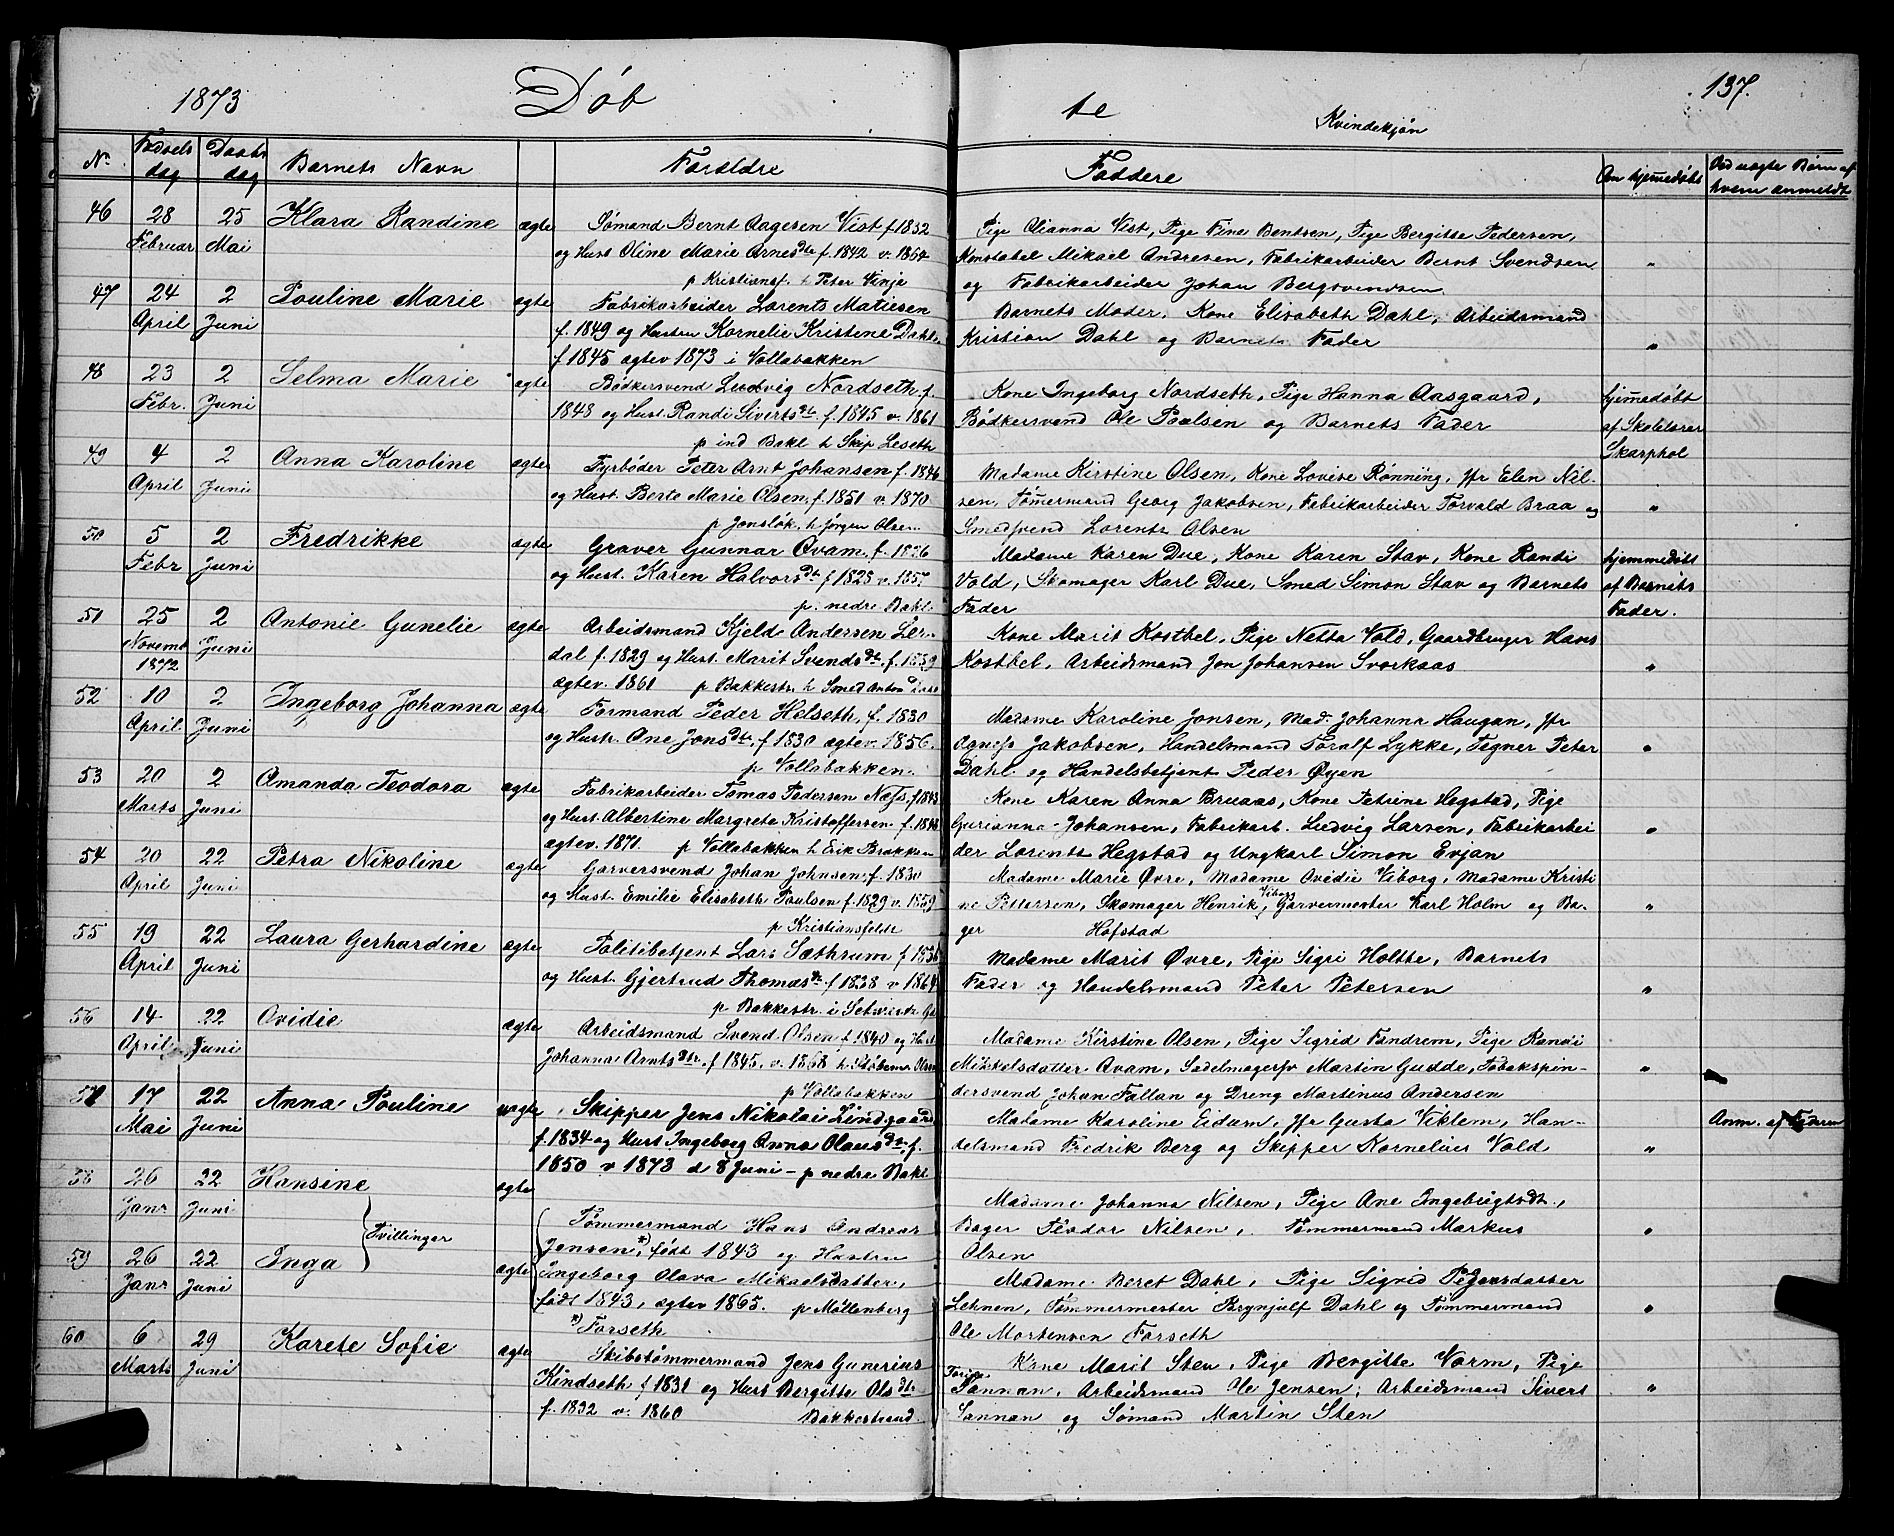 1873 Döb te Kvindekjön 137.
No Fødsels dag Daabs dag Barnets Navn Forældre Faddere Om hjemmedøbt Ved uægte Børn af hvem anmeldt
46 28 Februar 25 Mai Klara Randine ægte Sømand Bernt Aagesen Vist f 1832
og Hust Oline Marie Arnesdtr f. 1842 v. 1864
p Kristiansf. h Peter Vinje
Pige Olianna Vist, Pige Fine Bentsen, Pige Bergitte Pedersen,
Konstabel Mikael Andresen, Fabrikarbeider Bernt Svendsen
og Fabrikarbeider Johan Bergsvendsen "
47 24 April 2 Juni Pouline Marie ægte Fabrikarbeider Lorents Matiesen
f. 1849 og Hustru Kornelie Kristine Dahl
f. 1845 ægtev 1873 i Vollabakken
Barnets Moder, Kone Elisabeth Dahl, Arbeidsmand
Kristian Dahl og Barnets Fader "
48 23 Febr. 2 Juni Selma Marie ægte Bødkersvend Ludvig Nordseth f.
1843 og Hust. Randi Sivertsdtr f. 1845 v. 1861
p ind Bakl h Skip Leseth
Kone Ingeborg Nordseth, Pige Hanna Aasgaard,
Bødkersvend Ole Poulsen og Barnets Fader
hjemedøbt
af Skolelærer
Skarphol
49 4 April 2 Juni Anna Karoline ægte Fyrbøder Peter Arnt Johansen f. 1846
og Hust. Berte Marie Olsen, f. 1851 v. 1870
p Jonsløk. h Jørgen Olsen
Madame Kirstine Olsen, Kone Lovise Rønning, Jfr Elen Nil-
sen, Tømermand Georg Jakobsen, Fabrikarbeider Torvald Braa og
Smedsvend Lorents Olsen "
50 5 Febr 2 Juni Fredrikke ægte Graver Gunnar Qvam, f. 1826
og Hust. Karen Halvorsdt f 1828 v. 1857
p. nedre Bakl.
Madame Karen Due, Kone Karen Stav, Kone Randi
Vold, Skomager Karl Due, Smed Simon Stav og Barnets
Fader
hjemmedøbt
af Barnets
Fader.
51 25 Novemb 1872 2 Juni Antonie Gunelie ægte Arbeidsmand Kjeld Andersen Ler-
dal f. 1829 og Hust. Marit Svendsdt. f. 1839
ægtev. 1861 p Bakkestr. h Smed Anton
Kone Marit Kostbel, Pige Netta Vold, Gaardbruger Hans
Kostbel, Arbeidsmand Jon Johansen Svorkaas "
52 10 April 2 Juni Ingeborg Johanna ægte Formand Peder Helseth, f. 1830
og Hustr. Ane Jonsdtr. f 1830 ægtev. 1856.
p Vollabakken.
Madame Karoline Jonsen, Mad. Johanna Haugan, Jfr
Agnes Jakobsen, Handelsmand Toralf Lykke, Tegner Peter
Dahl og Handelsbetjent Peder Øyen "
53 20 Marts 2 Juni Amanda Teodora ægte Fabrikarbeider Tomas Pedersen Næss f 1843
og Hust. Albertine Margrete Kristoffersen f. 1848
ægtev. 1871. p Vollabakken h Erik Brakken
Kone Karen Anna Bruaas, Kone Petrine Hegstad, Pige
Gurianna Johansen, Fabrikarb. Ludvig Larsen, Fabrikarbei
der Lorents Hegstad og Ungkarl Simon Evjan "
54 20 April 22 Juni Petra Nikoline ægte Garversvend Johan Johnsen, f. 1830
og Hust. Emilie Elisabeth Poulsen f. 1829 v. 1859
p Kristiansfeldt
Madame Marie Øvre, Madame Ovidie Viborg, Madame Kristi
ne Pettersen, Skomager Henrik Viborg, Garvermester Karl Holm og Ba-
ger Hofstad "
55 19 April 22 Juni Laura Gerhardine ægte Politibetjent Lars Sæthrum f 1836
og Hust. Gjertrud Thomasdt f 1838 v 1864
p Bakkestr. i
Madame Marit Øvre, Pige Sigri Holtte, Barnets
Fader og Handelsmand Peter Petersen "
56 14 April 22 Juni Ovidie ægte Arbeidsmand Svend Olsen f 1840 og Hust
Johanna Arntsdtr. f 1845. v. 1868 h Støbem Olsen
p Vollabakken
Madame Kirstine Olsen, Pige Sigrid Fandrem, Pige Randi
Mikkelsdatter Qvam, Sadelmagersv Martin Gudde, Tobakspin-
dersvend Johan Fallan og Dreng Martinus Andersen "
57 17 Mai 22 Juni Anna Pouline uægte Skipper Jens Nikolai Lindgaard
f. 1834 og Hust Ingeborg Anna Olausdtr. f.
1850 v 1873 d 8 Juni - p nedre Bakl
Madame Karoline Eidum, Jfr Gusta Viklem, Han-
delsmand Fredrik Berg og Skipper Kornelius Vold "
Anm. af Faderen
58 26 Janr 22 Juni Hansine ægte
Tvillinger
59 26 Janr 22 Juni Inga ægte
Tømmermand Hans Andreas
Jensen,*) født 1843 og Hustru
Ingeborg Olava Mikaelsdatter,
født 1843, ægtev 1865. p Møllenberg
*) Forseth
Madame Johanna Nilsen, Pige Ane Ingebrigtsdt.,
Bager Teodor Nilsen, Tømmermand Markus
Olsen "
Madame Beret Dahl, Pige Sigrid Pedersdatter
Lehnen, Tømmermester Brynjulf Dahl og Tømmermand
Ole Mortensen Forseth "
60 6 Marts 29 Juni Karete Sofie ægte Skibstømmermand Jens Gunerius
Kindseth f 1831 og Hust Bergitte Olsdtr
f. 1832 v. 1860 Bakkestrand
Kone Marit Sten, Pige Bergitte Varm, Pige
Sannan, Arbeidsmand Ole Jensen, Arbeidsmand Sivert
Sannan og Sømand Martin Sten "